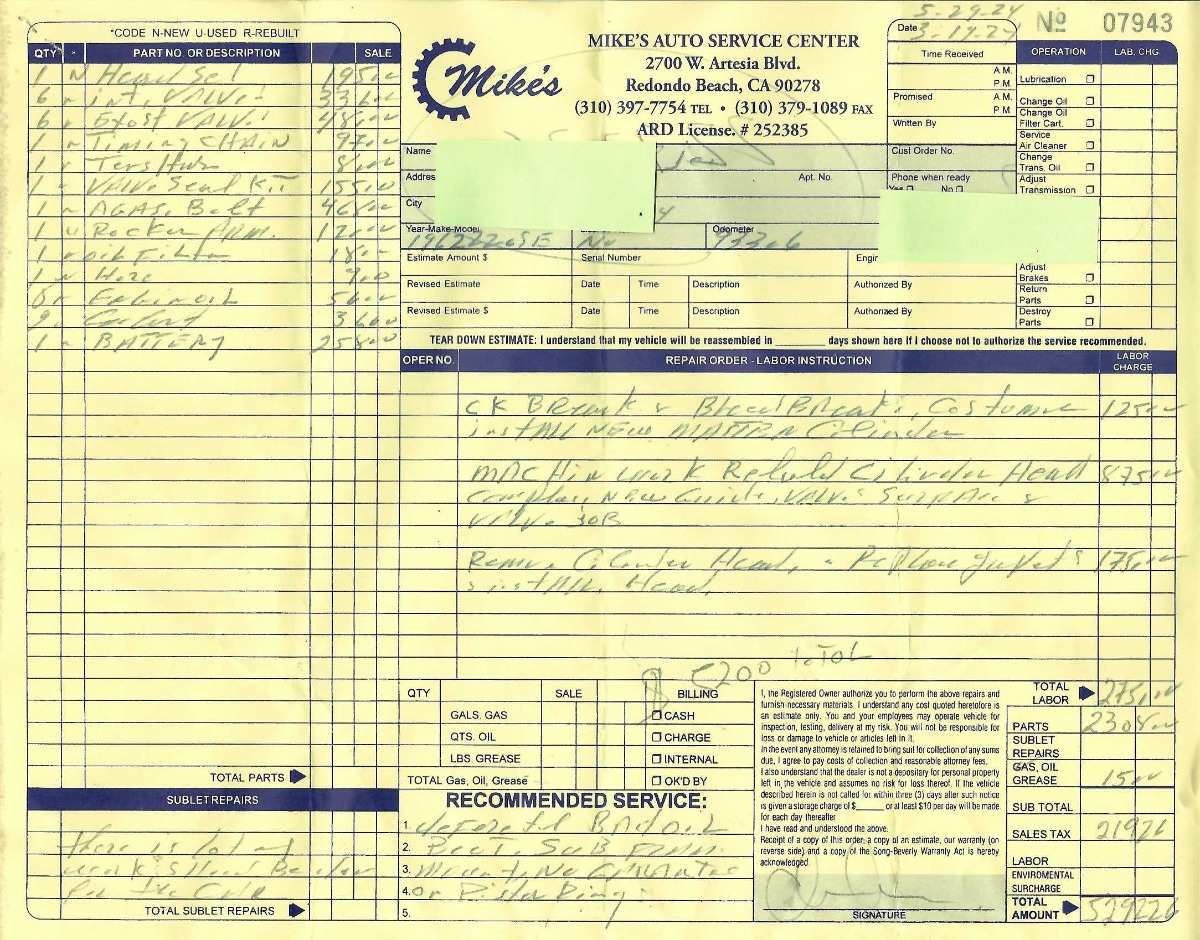 5-29-24
*CODE N-NEW U-USED R-REBUILT
QTY * PART NO. OR DESCRIPTION SALE
1 N Head Set 195.00
6 int. VALVE 336.00
6 Exost VALVE
1 Timing CHAIN 97.00
1 8.00
1 VALVE Seal KiT 155.00
1 Belt
1 u Rocker ARM. 120.00
1 oil Filter 18.00
1 Hose 9.00
8
9 36.00
1 BATTERY 258.00
TOTAL PARTS
SUBLET REPAIRS
there is lot of
work
for the CAR
TOTAL SUBLET REPAIRS
Mike's
MIKE'S AUTO SERVICE CENTER
2700 W. Artesia Blvd.
Redondo Beach, CA 90278
(310) 397-7754 TEL • (310) 379-1089 FAX
ARD License. # 252385
Date 3-19-24
№ 07943
Time Received A.M. P.M.
Promised A.M. P.M.
Written By
OPERATION LAB. CHG
Lubrication
Change Oil
Change Oil
Filter Cart.
Service
Air Cleaner
Change
Trans. Oil
Adjust
Transmission
Adjust
Brakes
Return
Parts
Destroy
Parts
Name
Cust Order No.
Addres Apt. No. Phone when ready
Yes No
City
Year-Make-Model Odometer
1962 220SE No 93306
Estimate Amount $ Serial Number Engir
Revised Estimate Date Time Description Authorized By
Revised Estimate $ Date Time Description Authorized By
TEAR DOWN ESTIMATE: I understand that my vehicle will be reassembled in ________ days shown here if I choose not to authorize the service recommended.
OPER NO. REPAIR ORDER - LABOR INSTRUCTION LABOR CHARGE
CK BReak & Bleed BReak, Costumer 125.00
insTALL New MASTER Cilinder
MACHin work Rebuld Cilinder Head 875.00
New Guide, VALVE &
VALVE JOB
Remove Cilinder Head, 175.00
insTALL Head.
$ 5200 toTOL
QTY SALE BILLING
GALS. GAS CASH
QTS. OIL CHARGE
LBS. GREASE INTERNAL
TOTAL Gas, Oil, Grease OK'D BY
RECOMMENDED SERVICE:
1. BAD OIL
2. SUB FRAM
3. Mount, No
4. or Piston Ring
5.
I, the Registered Owner authorize you to perform the above repairs and
furnish-necessary materials. I understand any cost quoted heretofore is
an estimate only. You and your employees may operate vehicle for
inspection, testing, delivery at my risk. You will not be responsible for
loss or damage to vehicle or articles left in it.
In the event any attorney is retained to bring suit for collection of any sums
due, I agree to pay costs of collection and reasonable attorney fees.
I also understand that the dealer is not a depositary for personal property
left in the vehicle and assumes no risk for loss thereof. If the vehicle
described herein is not called for within three (3) days after such notice
is given a storage charge of $______ or at least $10 per day will be made
for each day thereafter
I have read and understood the above.
Receipt of a copy of this order, a copy of an estimate, our warranty (on
reverse side) and a copy of the Song-Beverly Warranty Act is hereby
acknowledged.
SIGNATURE
TOTAL LABOR 275.00
PARTS 2308.00
SUBLET
REPAIRS
GAS, OIL
GREASE 15.00
SUB TOTAL
SALES TAX 219 26
LABOR
ENVIROMENTAL
SURCHARGE
TOTAL AMOUNT 5292 26